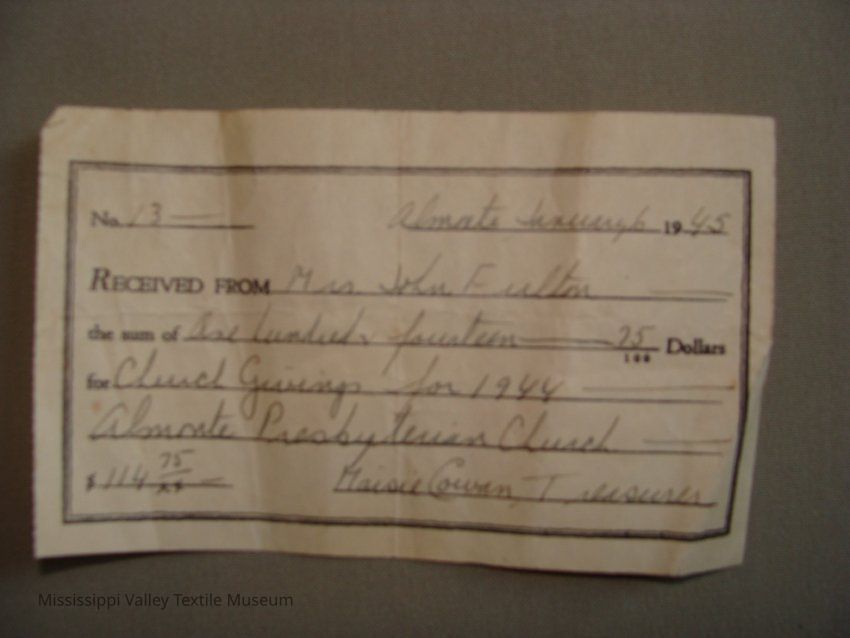 No. 13 Almonte January 6 1945
RECEIVED FROM Mrs John Fulton
the sum of One hundred fourteen 75/100 Dollars
for Church Givings for 1944
Almonte Presbyterian Church
$ 114 75/xx Maisie Cowan Treasurer
Mississippi Valley Textile Museum